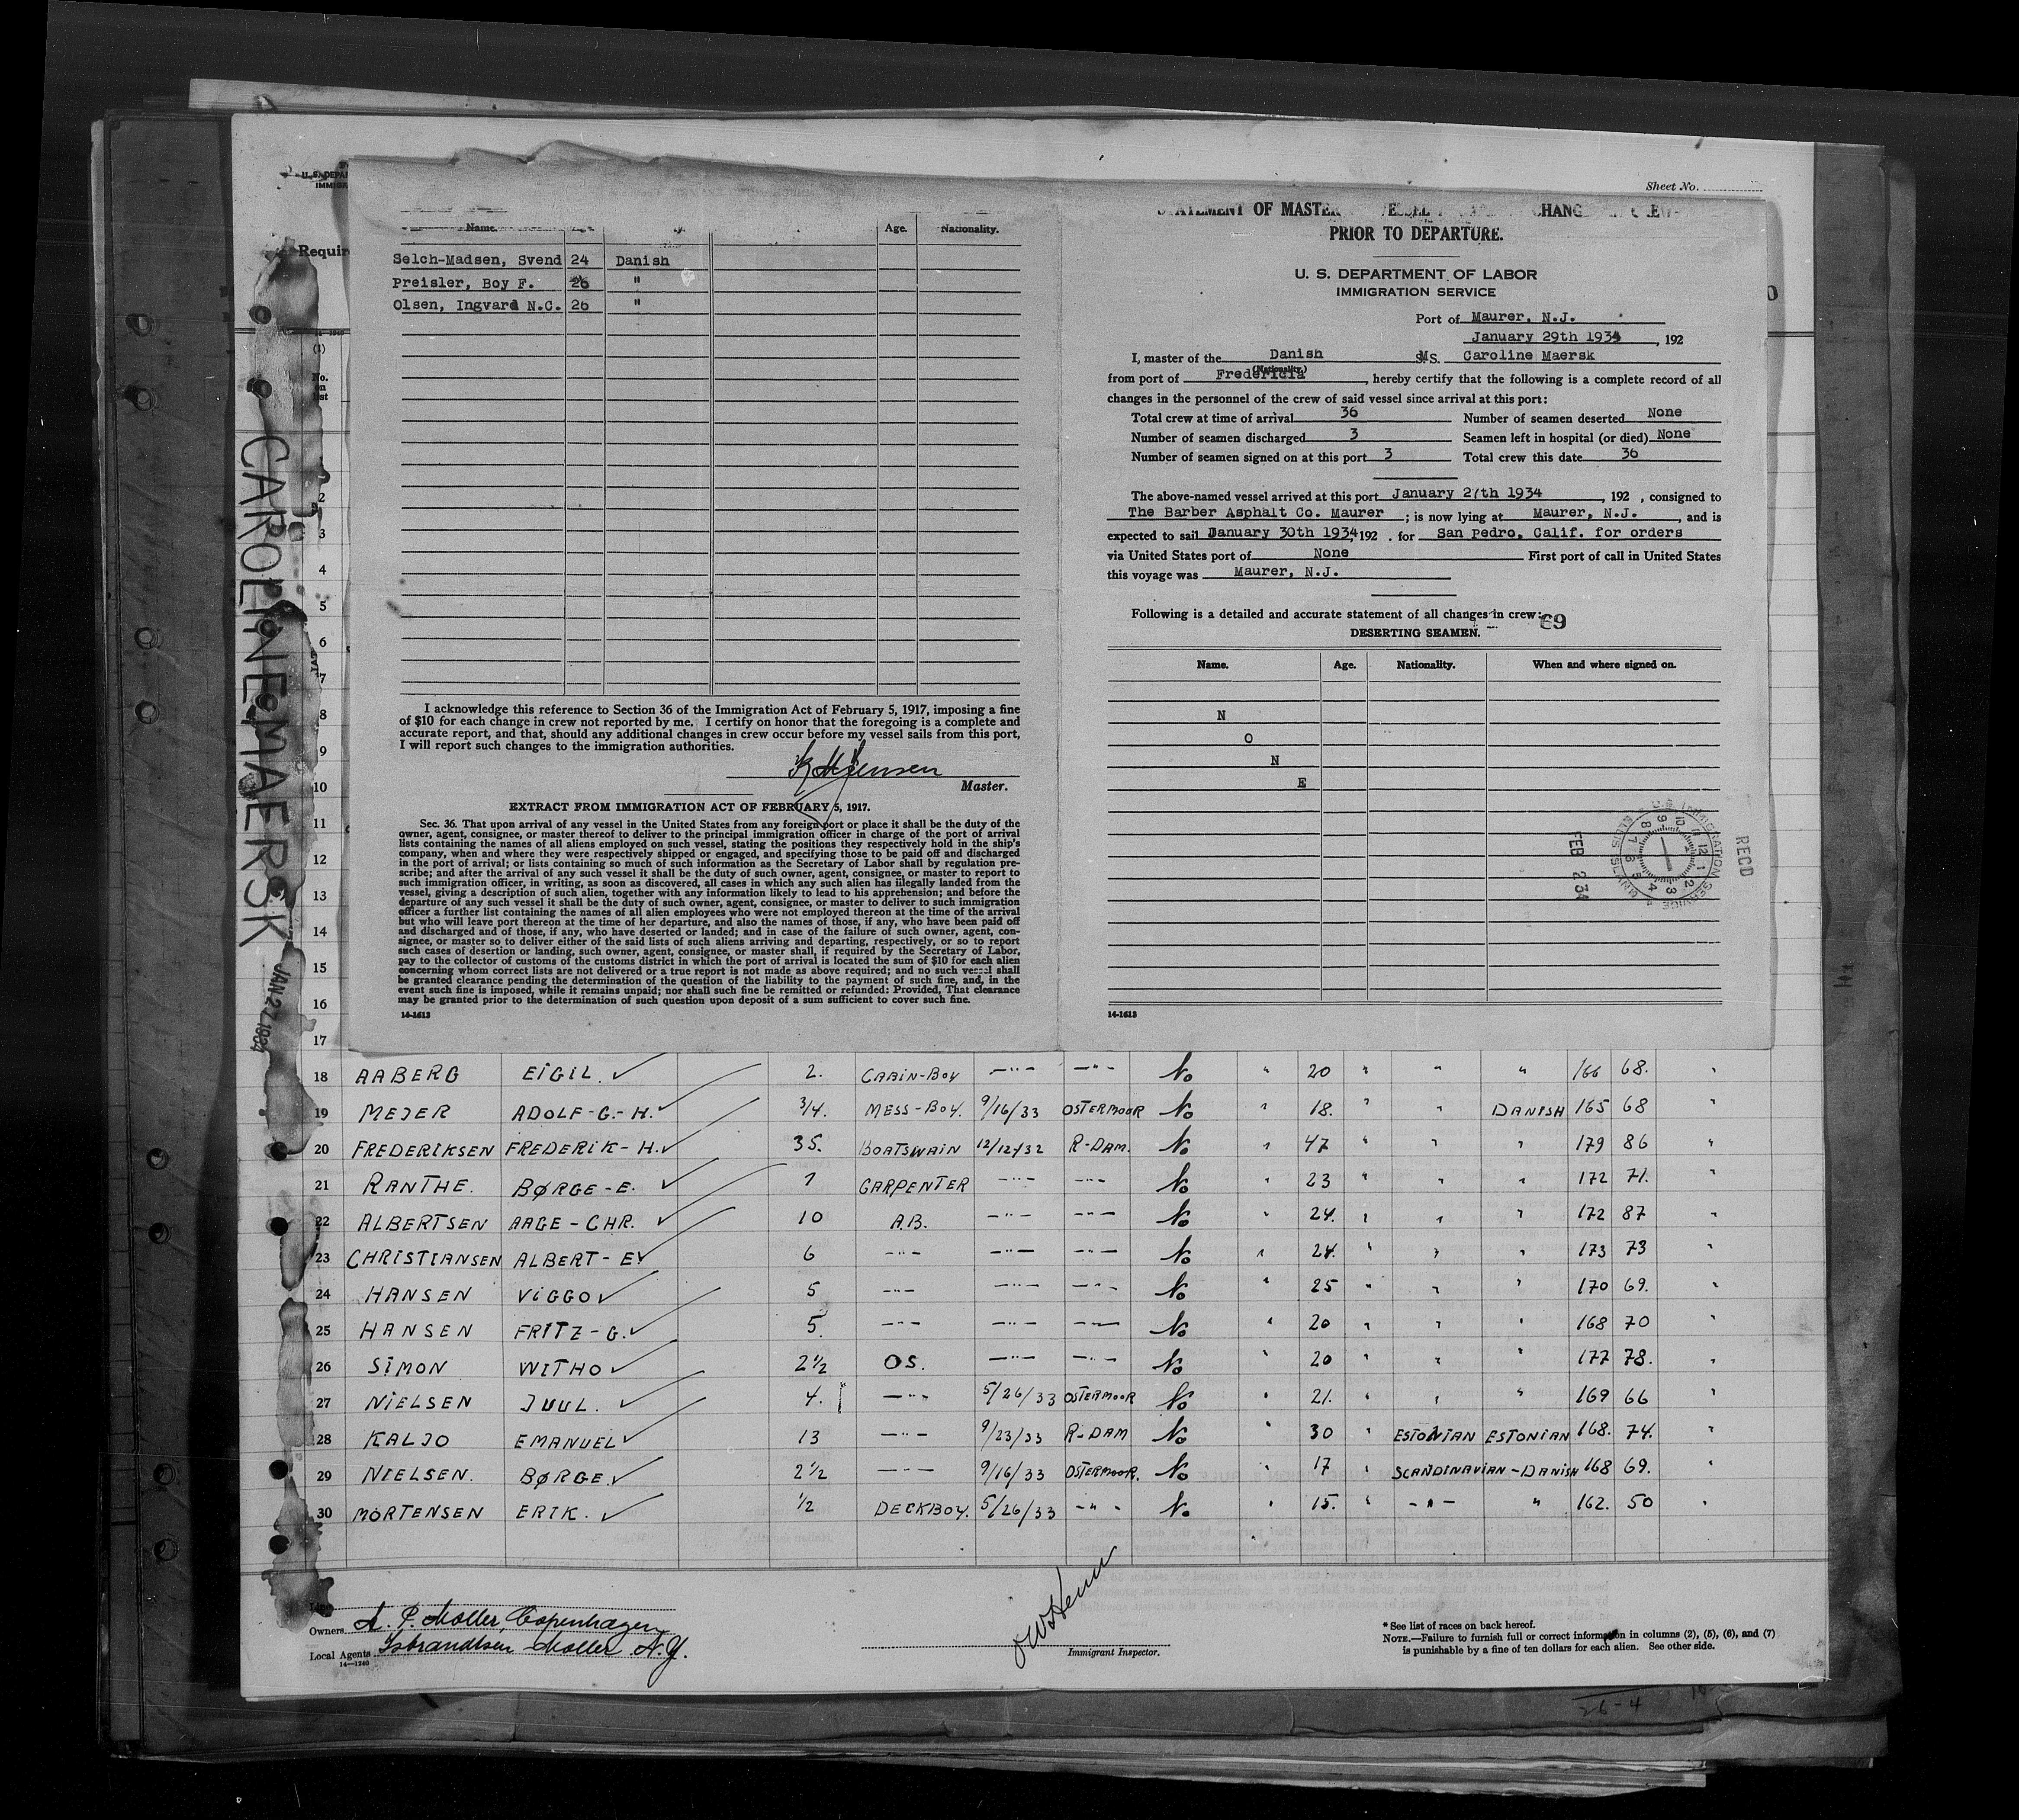 Sheet No.
U. S. DEPAR
IMMIGR
Requir
14—1240
(1)
No.
on
list
CAROLINE MAERSK
JAN 27 1934
Name. Age. Nationality.
Selch-Madsen, Svend 24 Danish
Preisler, Boy F. 26 "
Olsen, Ingvard N.C. 26 "
I acknowledge this reference to Section 36 of the Immigration Act of February 5, 1917, imposing a fine
of $10 for each change in crew not reported by me. I certify on honor that the foregoing is a complete and
accurate report, and that, should any additional changes in crew occur before my vessel sails from this port,
I will report such changes to the immigration authorities.
Master.
EXTRACT FROM IMMIGRATION ACT OF FEBRUARY 5, 1917.
Sec. 36. That upon arrival of any vessel in the United States from any foreign port or place it shall be the duty of the
owner, agent, consignee, or master thereof to deliver to the principal immigration officer in charge of the port of arrival
lists containing the names of all aliens employed on such vessel, stating the positions they respectively hold in the ship's
company, when and where they were respectively shipped or engaged, and specifying those to be paid off and discharged
in the port of arrival; or lists containing so much of such information as the Secretary of Labor shall by regulation pre-
scribe; and after the arrival of any such vessel it shall be the duty of such owner, agent, consignee, or master to report to
such immigration officer, in writing, as soon as discovered, all cases in which any such alien has illegally landed from the
vessel, giving a description of such alien, together with any information likely to lead to his apprehension; and before the
departure of any such vessel it shall be the duty of such owner, agent, consignee, or master to deliver to such immigration
officer a further list containing the names of all alien employees who were not employed thereon at the time of the arrival
but who will leave port thereon at the time of her departure, and also the names of those, if any, who have been paid off
and discharged and of those, if any, who have deserted or landed; and in case of the failure of such owner, agent, con-
signee, or master so to deliver either of the said lists of such aliens arriving and departing, respectively, or so to report
such cases of desertion or landing, such owner, agent, consignee, or master shall, if required by the Secretary of Labor,
pay to the collector of customs of the customs district in which the port of arrival is located the sum of $10 for each alien
concerning whom correct lists are not delivered or a true report is not made as above required; and no such vessel shall
be granted clearance pending the determination of the question of the liability to the payment of such fine, and, in the
event such fine is imposed, while it remains unpaid; nor shall such fine be remitted or refunded: Provided, That clearance
may be granted prior to the determination of such question upon deposit of a sum sufficient to cover such fine.
14-1613
STATEMENT OF MASTER VESSEL CHANG CREW
PRIOR TO DEPARTURE.
U. S. DEPARTMENT OF LABOR
IMMIGRATION SERVICE
Port of Maurer, N.J.
January 29th 1934, 192
I, master of the Danish MS. Caroline Maersk
(Nationality.)
from port of Fredericia, hereby certify that the following is a complete record of all
changes in the personnel of the crew of said vessel since arrival at this port:
Total crew at time of arrival 36 Number of seamen deserted None
Number of seamen discharged 3 Seamen left in hospital (or died) None
Number of seamen signed on at this port 3 Total crew this date 36
The above-named vessel arrived at this port January 27th 1934, 192 , consigned to
The Barber Asphalt Co. Maurer ; is now lying at Maurer, N.J. , and is
expected to sail January 30th 1934, 192 . for San Pedro, Calif. for orders
via United States port of None First port of call in United States
this voyage was Maurer, N.J.
Following is a detailed and accurate statement of all changes in crew:
69
DESERTING SEAMEN.
Name. Age. Nationality. When and where signed on.
N
O
N
E
RECD
U.S. IMMIGRATION SERVICE
FEB 2 34
14-1613
2
3
4
5
6
7
8
9
10
11
12
13
14
15
16
17
18 AABERG EIGIL. 2. CABIN-BOY —"— —"— No " 20 " " " 166 68. "
19 MEJER ADOLF-G.-H. 3/4. MESS-BOY. 9/16/33 OSTERMOOR No " 18. " " DANISH 165 68 "
20 FREDERIKSEN FREDERIK-H. 35. BOATSWAIN 12/12/32 R-DAM. No " 47 " " " 179 86 "
21 RANTHE. BØRGE-E. 7 CARPENTER —"— —"— No " 23 " " " 172 71. "
22 ALBERTSEN AAGE-CHR. 10 A.B. —"— —"— No " 24. " " " 172 87 "
23 CHRISTIANSEN ALBERT-E. 6 —"— —"— —"— No " 24. " " " 173 73 "
24 HANSEN VIGGO 5 —"— —"— —"— No " 25 " " " 170 69. "
25 HANSEN FRITZ-G. 5. —"— —"— —"— No " 20 " " " 168 70 "
26 SIMON WITHO 2½ OS. —"— —"— No " 20 " " " 177 78. "
27 NIELSEN JUUL. 4. —"— 5/26/33 OSTERMOOR No " 21. " " " 169 66 "
28 KALJO EMANUEL 13 —"— 9/23/33 R-DAM No " 30 " ESTONIAN ESTONIAN 168. 74. "
29 NIELSEN. BØRGE. 2½ —"— 9/16/33 OSTERMOOR. No " 17 " SCANDINAVIAN-DANISH 168 69. "
30 MORTENSEN ERIK. ½ DECKBOY. 5/26/33 —"— No " 15. " —"— " 162. 50 "
Line
Owners A. P. Moller, Copenhagen
Local Agents Isbrandtsen-Moller N.Y.
14—1240
Immigrant Inspector.
* See list of races on back hereof.
NOTE.—Failure to furnish full or correct information in columns (2), (5), (6), and (7)
is punishable by a fine of ten dollars for each alien. See other side.
26-4